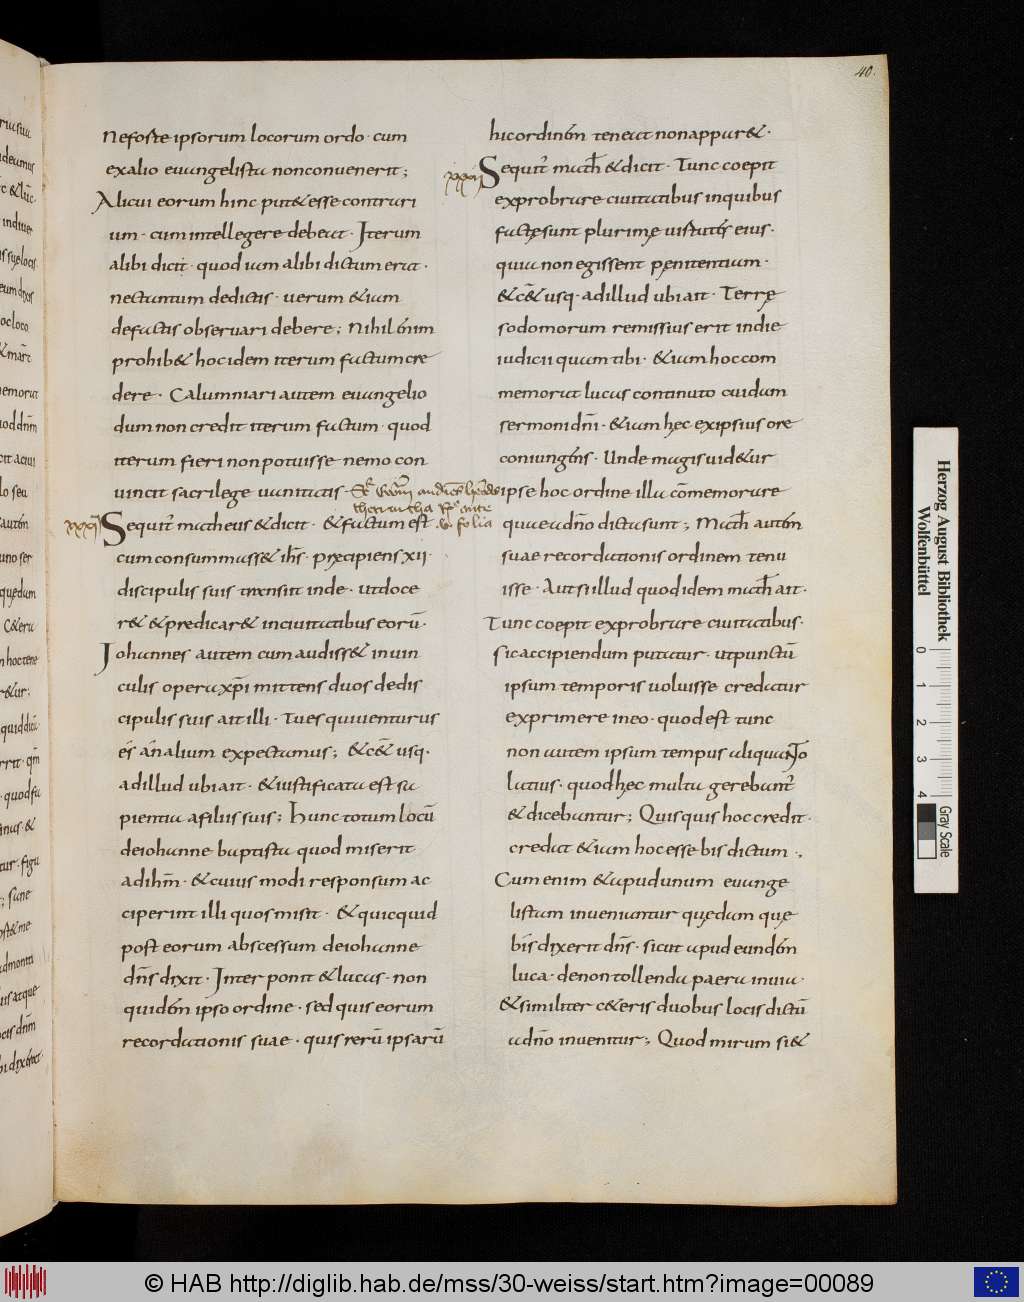 40.
Nefoste ipsorum locorum ordo · cum
exalio euangelista nonconuenerit ;
Alicui eorum hinc put& esse contrari
um · cum intellegere debeat · Iterum
alibi dicit · quod iam alibi dictum erat ·
nectantum dedictis · uerum &iam
defactis obseruari debere ; Nihil enim
prohib& hoc idem iterum factum cre
dere · Calumniari autem euangelio
dum non credit iterum factum · quod
iterum fieri non potuisse nemo con
uincit sacrilege uanitatis ·
xxxi
Sequit̃ matheus & dicit · & factum est
cum consummass& ih̄s · pręcipiens xii ·
discipulis suis transiit inde · ut doce
r& & predicar& inciuitatibus eorū ·
Iohannes autem cum audiss& inuin
culis opera xp̄i mittens duos de dis
cipulis suis ait illi · Tu es qui uenturus
és an̄ alium expectamus ; &c& usq ·
adillud ubi ait · & iustificata est sa
pientia afiliis suis ; Hunc totum locū
deiohanne baptista quod miserit
ad ihm̄ · & cuius modi responsum ac
ciperint illi quos misit · & quicquid
post eorum abscessum deiohanne
dn̄s dixit · Inter ponit & lucas · non
quidem ipso ordine · sed quis eorum
recordationis suae · quis rerū ipsarū
hic ordinem teneat non appar& ·
xxxii
Sequit̃ math̄ & dicit · Tunc coepit
exprobrare ciuitatibus in quibus
factę sunt plurimę uirtutes eius ·
quia non egissent pęnitentiam ·
& c& usq · adillud ubi ait · Terrę
sodomorum remissius erit indie
iudicii quam tibi · & iam hoc com
memorat lucas continuato cuidam
sermoni dn̄i · & iam hęc ex ipsius ore
coniungens · Unde magis uid&ur
ipse hoc ordine illa cōmemorare
quae adn̄o dicta sunt ; Math̄ autem
suae recordationis ordinem tenu
isse · Aut si illud quod idem math̄ ait ·
Tunc coepit exprobrare ciuitatibus ·
sic accipiendum putatur · ut punctū
ipsum temporis uoluisse credatur
exprimere in eo · quod est tunc
non autem ipsum tempus aliquanto
latius · quo hęc multa gerebant̃
& dicebantur ; Quisquis hoc credit ·
credat & iam hoc esse bis dictum ·,
Cum enim & apud unum euange
listam inueniantur quędam quę
bis dixerit dn̄s · sicut apud eundem
luca · de non tollenda paera inuia ·
& similiter c&eris duobus locis dictū
adn̄o inuenitur ; Quod mirum si &
Herzog August Bibliothek
Wolfenbüttel
0 1 2 3 4
Gray Scale
© HAB http://diglib.hab.de/mss/30-weiss/start.htm?image=00089